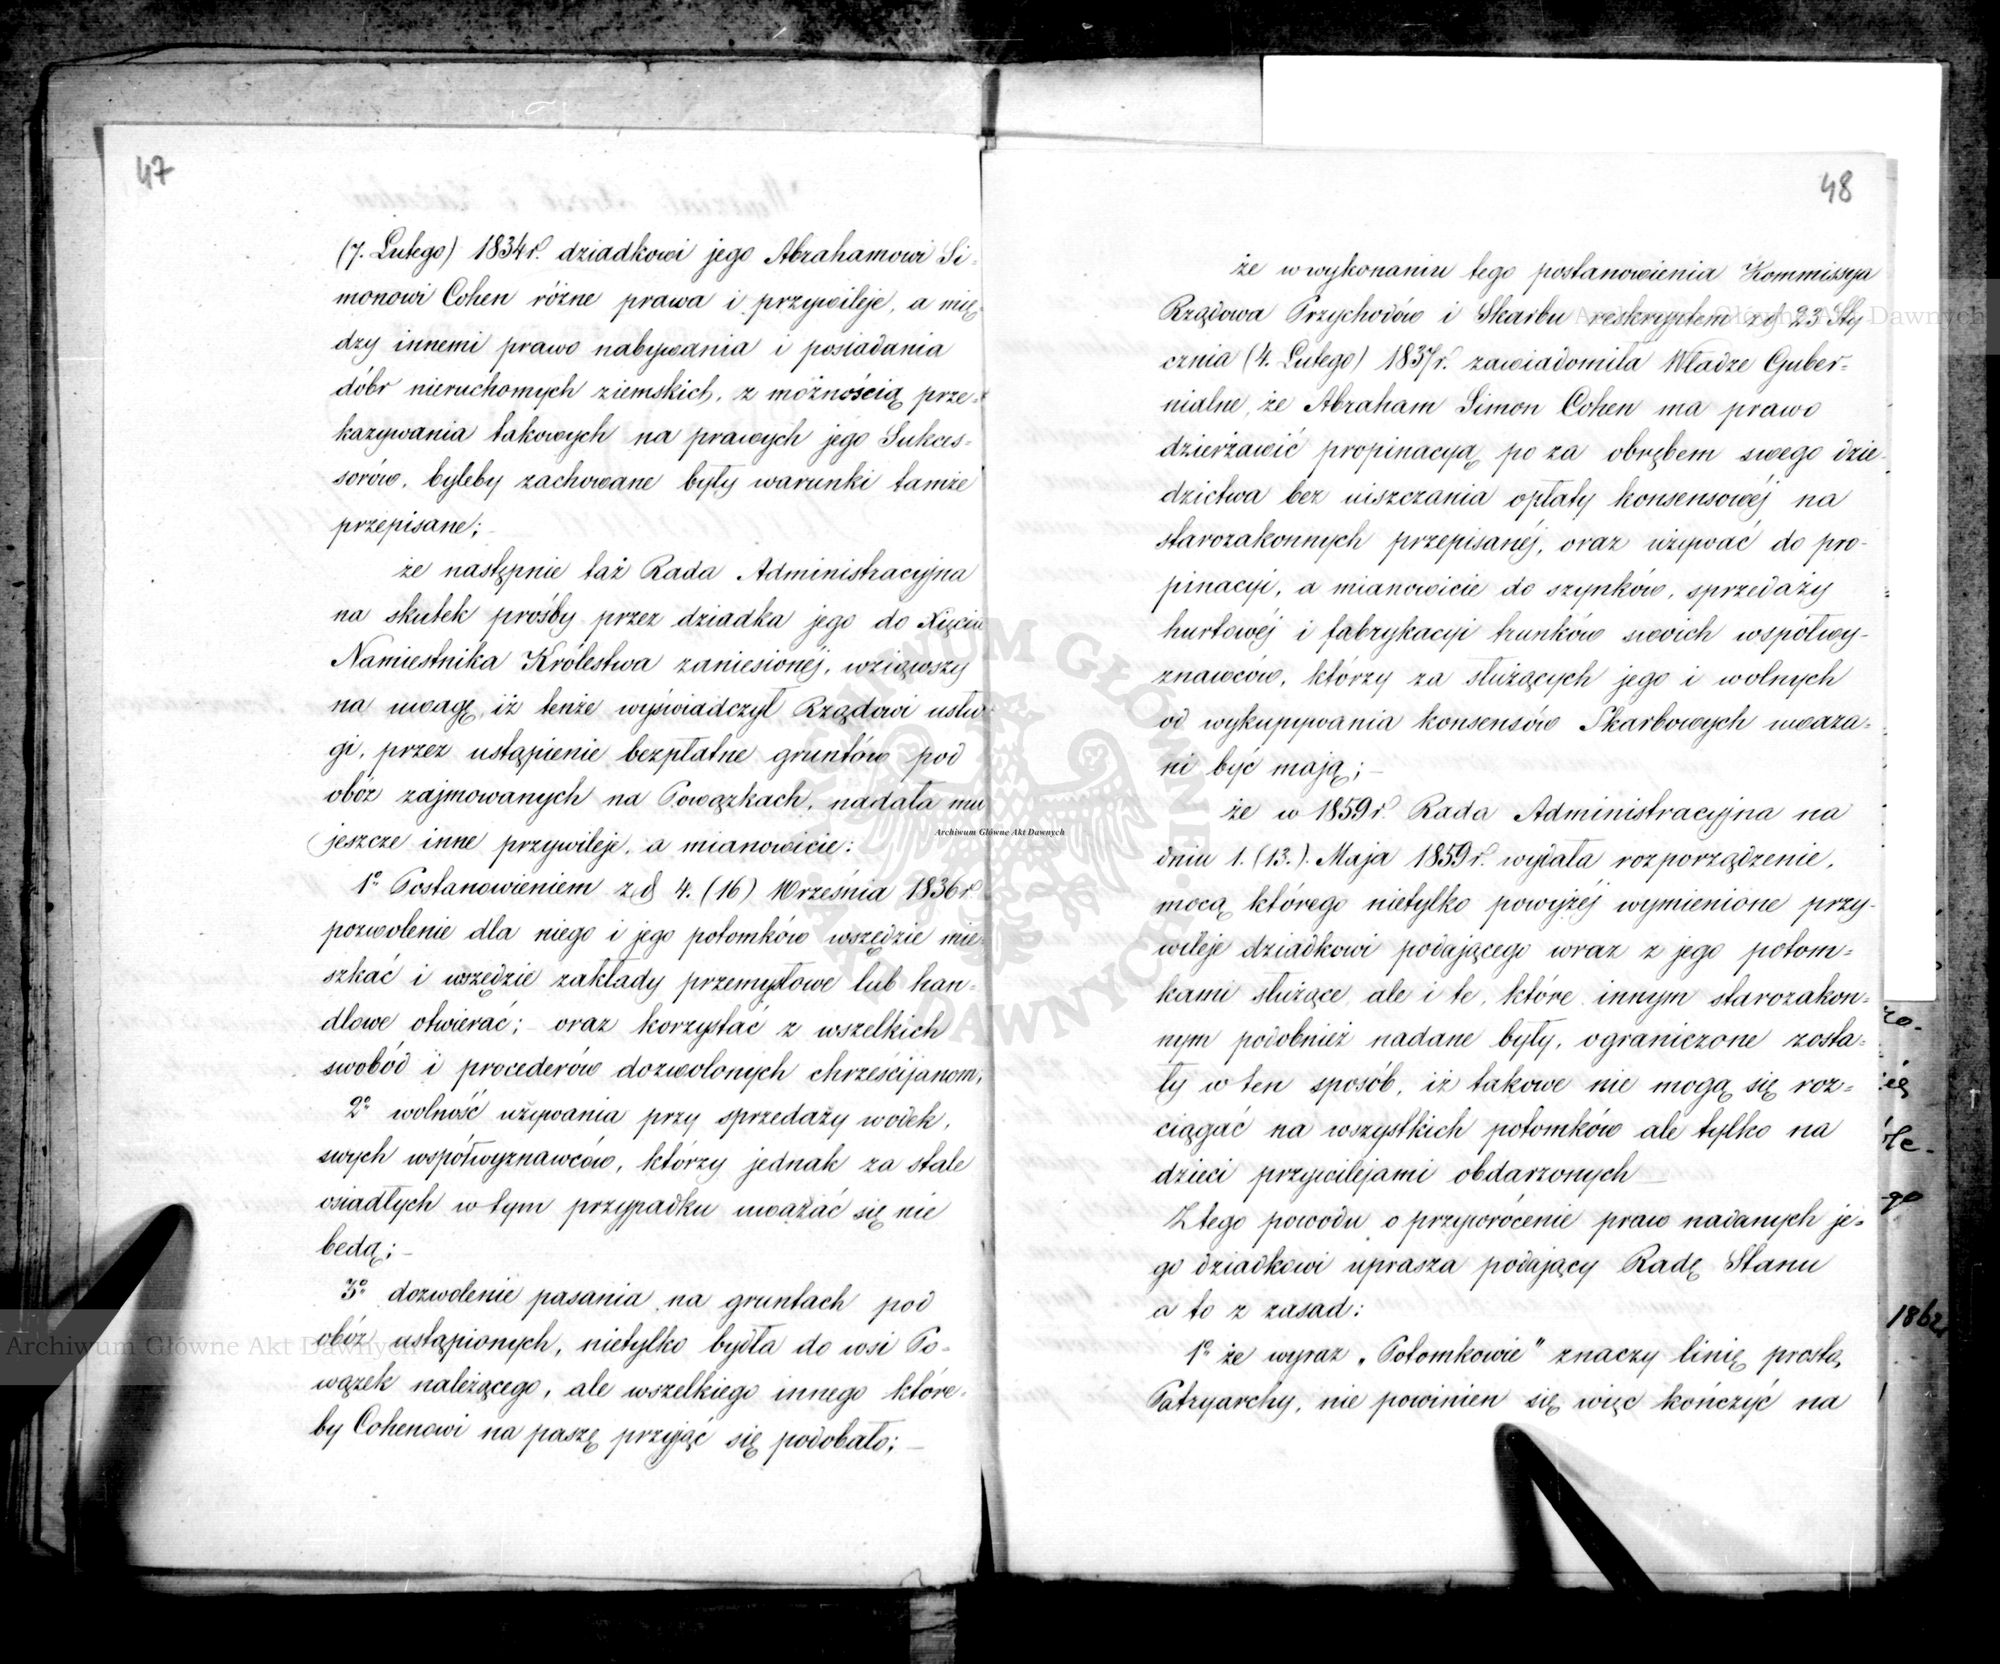 47
(7. Lutego) 1834 r. dziadkowi jego Abrahamowi Si-
monowi Cohen różne prawa i przywileje, a mię-
dzy innemi prawo nabywania i posiadania
dóbr nieruchomych ziemskich, z możnością prze-
kazywania takowych na prawych jego Sukces-
sorów, byleby zachowane były warunki tamże
przepisane;
że następnie taż Rada Administracyjna
na skutek prośby przez dziadka jego do Xięcia
Namiestnika Królestwa zaniesionéj, wziąwszy
na uwagę, iż tenże wyświadczył Rządowi usłu-
gi, przez ustąpienie bezpłatne gruntów pod
obóz zajmowanych na Powązkach, nadała mu
jeszcze inne przywileje, a mianowicie:
1o Postanowieniem z d 4. (16) Września 1836 r
pozwolenie dla niego i jego potomków wszędzie mie-
szkać i wszędzie zakłady przemysłowe lub han-
dlowe otwierać; oraz korzystać z wszelkich
swobód i procederów dozwolonych chrześcijanom;
2o wolność używania przy sprzedaży wódek,
swych współwyznawców, którzy jednak za stale
osiadłych w tym przypadku uważać się nie
bedą; –
3o dozwolenie pasania na gruntach pod
obóz ustąpionych, nietylko bydła do wsi Po-
wązek należącego, ale wszelkiego innego które-
by Cohenowi na paszę przyjąć się podobało; –
48
że w wykonaniu tego postanowienia Kommissya
Rządowa Przychodów i Skarbu reskryptem z d 23 Sty
cznia (4. Lutego) 1837 r. zawiadomiła Władze Guber-
nialne, że Abraham Simon Cohen ma prawo
dzierżawić propinacyą po za obrębem swego dzie-
dzictwa bez uiszczania opłaty konsensowéj na
starozakonnych przepisanéj, oraz używać do pro-
pinacyi, a mianowicie do szynków, sprzedaży
hurtowéj i fabrykacyi trunków swoich współwy-
znawców, którzy za służących jego i wolnych
od wykupywania konsensów Skarbowych uważa-
ni być mają; –
że w 1859 r. Rada Administracyjna na
dniu 1. (13.) Maja 1859 r. wydała rozporządzenie,
mocą którego nietylko powyżéj wymienione przy-
wileje dziadkowi podającego wraz z jego potom-
kami służące, ale i te, które innym starozakon-
nym podobnież nadane były, ograniczone zosta-
ły w ten sposób, iż takowe nie mogą się roz-
ciągać na wszystkich potomków ale tylko na
dzieci przywilejami obdarzonych
Z tego powodu o przywrócenie praw nadanych je-
go dziadkowi uprasza podający Radę Stanu
a to z zasad:
1o że wyraz „Potomkowie" znaczy linię prostą
Patryarchy, nie powinien się więc kończyć na
1862
Archiwum Główne Akt Dawnych
Archiwum Główne Akt Dawnych
Archiwum Główne Akt Dawnych
ARCHIWUM GŁÓWNE AKT DAWNYCH